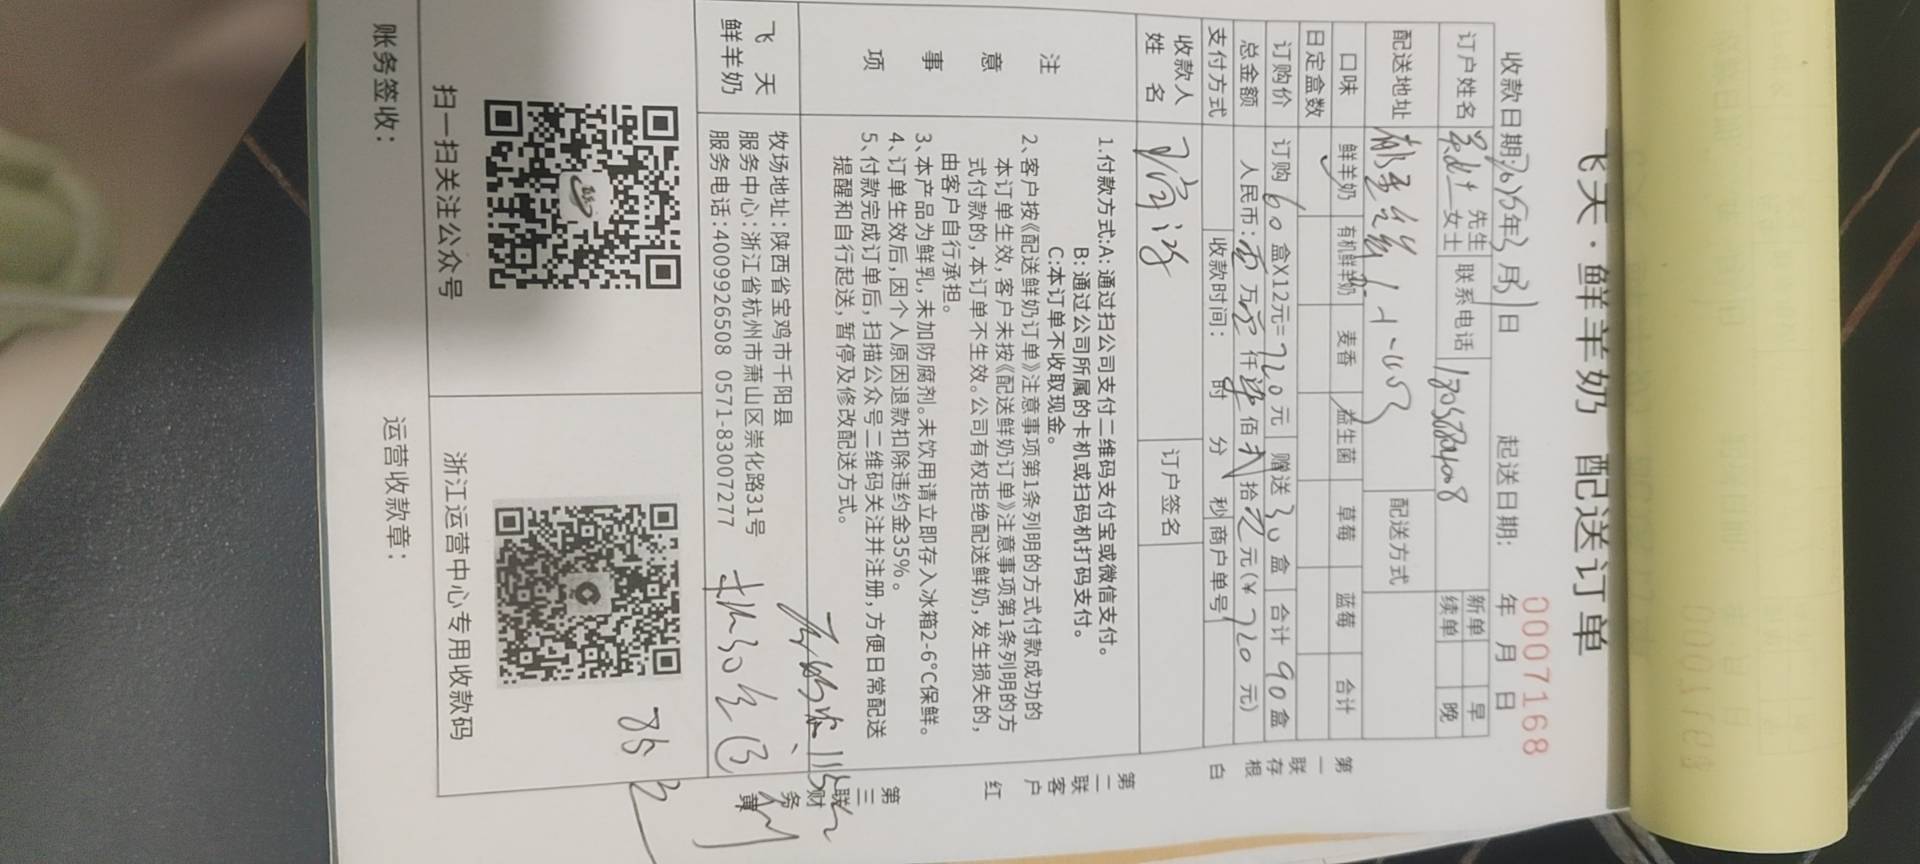 飞天·鲜羊奶 配送订单
0007168
收款日期: 年 月 31日 起送日期: 年 月 日
订户姓名 先生 女士 联系电话 新单 续单 早 晚
配送地址 配送方式
口味 鲜羊奶 有机鲜羊奶 麦香 益生菌 草莓 蓝莓 合计
日定盒数
订购价 订购60盒X12元=720元 赠送30盒 合计90盒
总金额 人民币: 万 仟 佰 拾 元(¥720元)
支付方式 收款时间: 时 分 秒 商户单号
收款人姓名 订户签名
注意事项
1.付款方式:A: 通过扫公司支付二维码支付宝或微信支付。
B: 通过公司所属的卡机或扫码机打码支付。
C:本订单不收取现金。
2、客户按《配送鲜奶订单》注意事项第1条列明的方式付款成功的
本订单生效,客户未按《配送鲜奶订单》注意事项第1条列明的方
式付款的,本订单不生效。公司有权拒绝配送鲜奶,发生损失的,
由客户自行承担。
3、本产品为鲜乳,未加防腐剂。未饮用请立即存入冰箱2-6°C保鲜。
4、订单生效后,因个人原因退款扣除违约金35%。
5、付款完成订单后,扫描公众号二维码关注并注册,方便日常配送
提醒和自行起送,暂停及修改配送方式。
飞天
鲜羊奶
牧场地址:陕西省宝鸡市千阳县
服务中心:浙江省杭州市萧山区崇化路31号
服务电话:4009926508 0571-83007277
扫一扫关注公众号
浙江运营中心专用收款码
账务签收: 运营收款章:
第一联存根 白
第二联客户 红
第三联财务 黄